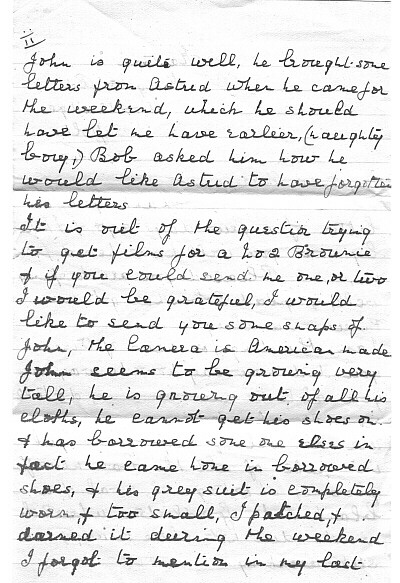 11
John is quite well, he brought some
letters from Astrid when he came for
the weekend, which he should
have let me have earleer, (naughty
bouy,) Bob asked him how he
would like Astrid to have forgotten
his letters
It is out of the question trying
to get films for a No 2 Brownie
& if you could send me one, or two
I would be grateful, I would
like to send you some snaps of
John, the Camera is American made
John seems to be growing very
tall, he is growing out of all his
cloths, he cannot get his shoes on
& has borrowed some one elses in
fact he came home in borrowed
shoes, & his grey suit is completely
worn, & too small, I patched, &
darned it during the weekend
I forgot to mention in my last